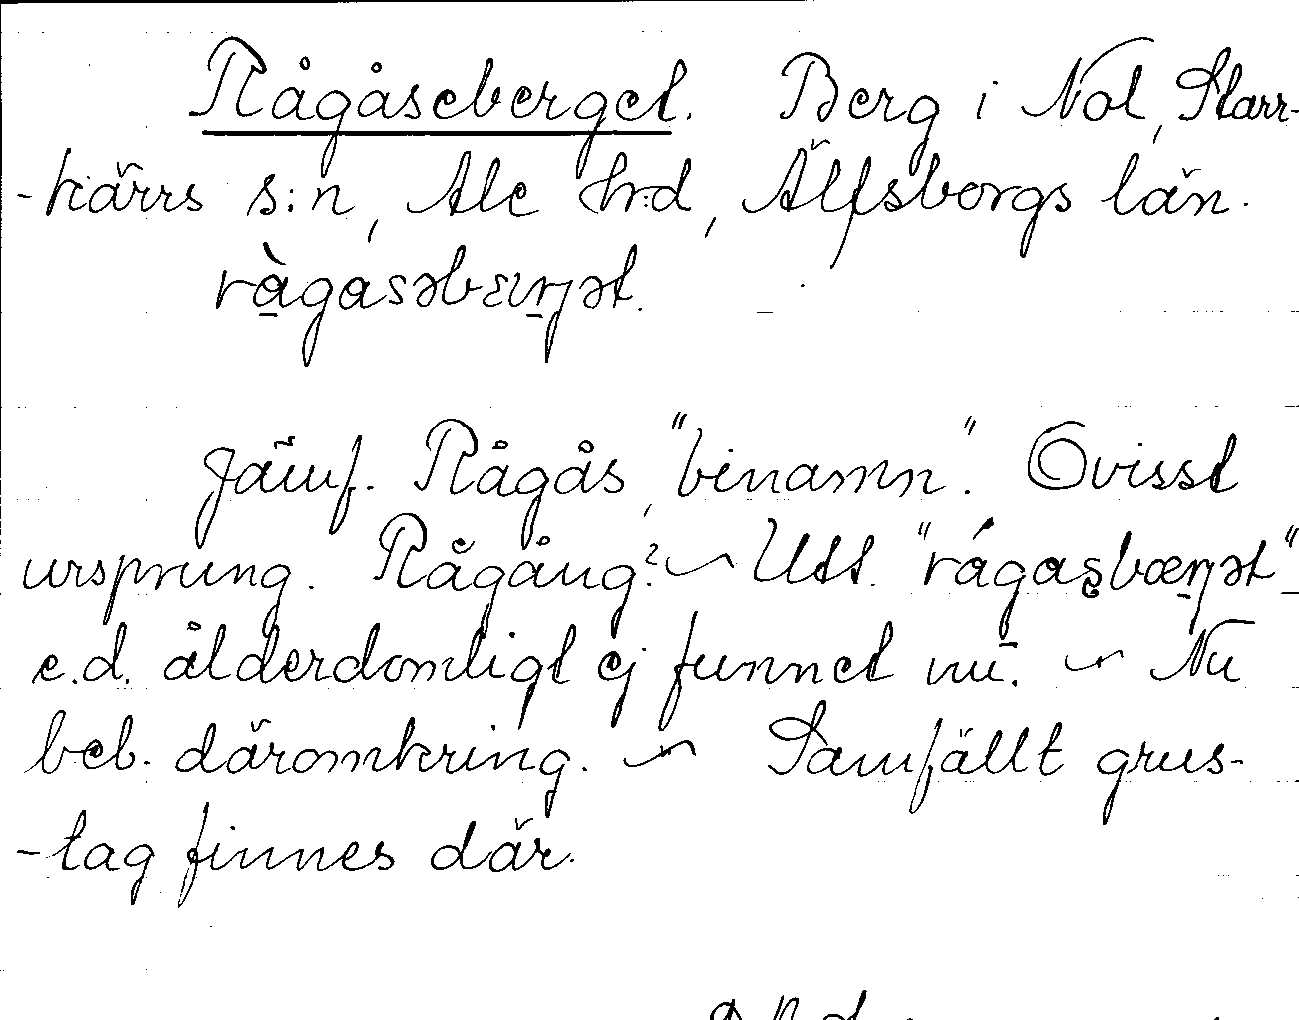 Rågåseberget. Berg i Nol, Starr-
-kärrs s:n, Ale hd, Älfsborgs län.
rὰgasəbæŋət.
Jämf. Rågås, "binamn". Ovisst
ursprung. Rågång? ~ Utt. "rágasbæŋət"
e.d. ålderdomligt ej funnet nu. ~ Nu
beb. däromkring. ~ Samfällt grus-
-tag finnes där.